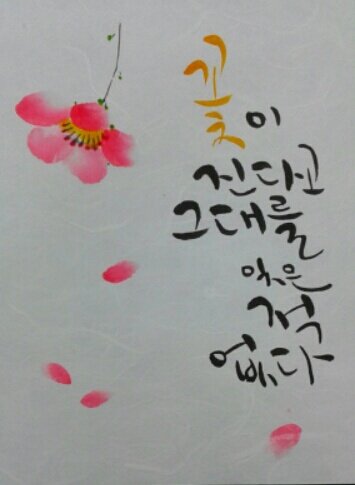 꽃이
진다고
그대를
잊은
적
없다